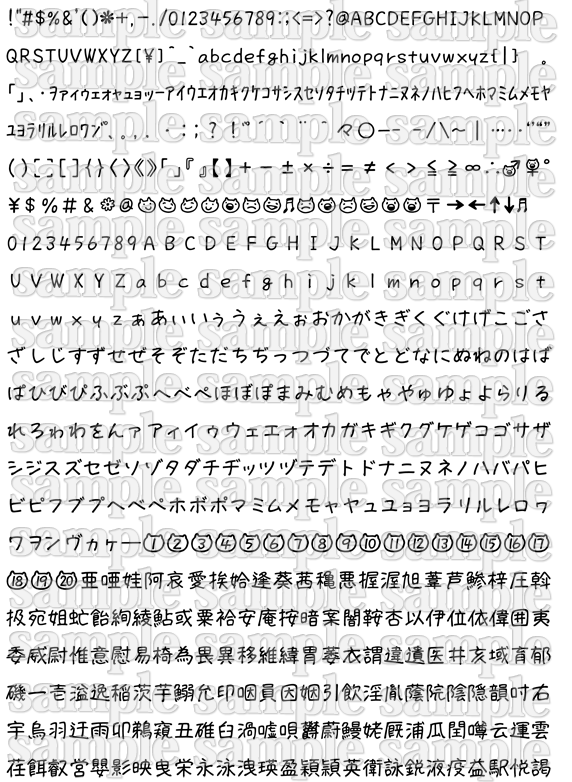 !"#$%&'()*+,-./0123456789:;<=>?@ABCDEFGHIJKLMNOP
QRSTUVWXYZ[¥]^_`abcdefghijklmnopqrstuvwxyz{|} 。
「」、・ヲァィゥェォャュョッーアイウエオカキクケコサシスセソタチツテトナニヌネノハヒフヘホマミムメモヤ
ユヨラリルレロワン゛゜、。,.・:;?!゛゜´`¨^ 々〇ー— -/\~|…‥'""
()〔〕[]{}〈〉《》「」『』【】+-±×÷=≠<>≦≧∞∴♂♀°
¥$%#&*@♬〒→←↑↓♬
0123456789ABCDEFGHIJKLMNOPQRST
UVWXYZabcdefghijklmnopqrst
uvwxyzぁあぃいぅうぇえぉおかがきぎくぐけげこごさ
ざしじすずせぜそぞただちぢっつづてでとどなにぬねのはば
ぱひびぴふぶぷへべぺほぼぽまみむめもゃやゅゆょよらりる
れろゎわをんァアィイゥウェエォオカガキギクグケゲコゴサザ
シジスズセゼソゾタダチヂッツヅテデトドナニヌネノハバパヒ
ビピフブプヘベペホボポマミムメモャヤュユョヨラリルレロヮ
ワヲンヴヵヶー①②③④⑤⑥⑦⑧⑨⑩⑪⑫⑬⑭⑮⑯⑰
⑱⑲⑳亜唖娃阿哀愛挨姶逢葵茜穐悪握渥旭葦芦鯵梓圧斡
扱宛姐虻飴絢綾鮎或粟袷安庵按暗案闇鞍杏以伊位依偉囲夷
委威尉惟意慰易椅為畏異移維緯胃萎衣謂違遺医井亥域育郁
磯一壱溢逸稲茨芋鰯允印咽員因姻引飲淫胤蔭院陰隠韻吋右
宇烏羽迂雨卯鵜窺丑碓臼渦嘘唄欝蔚鰻姥厩浦瓜閏噂云運雲
荏餌叡営嬰影映曳栄永泳洩瑛盈穎頴英衛詠鋭液疫益駅悦謁
sample